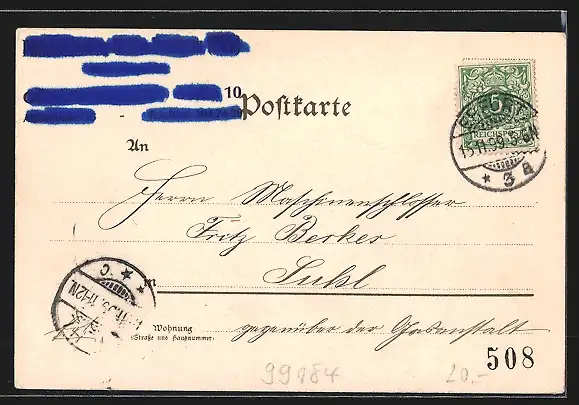 10
Postkarte
5
REICHSPOST
13.11.99.5-6N
* 3 a
An
Herrn Maschinenschlosser
Fritz Berker
Suhl
Wohnung
(Straße und Hausnummer)
gegenüber der Gasanstalt
508
99884
20.-